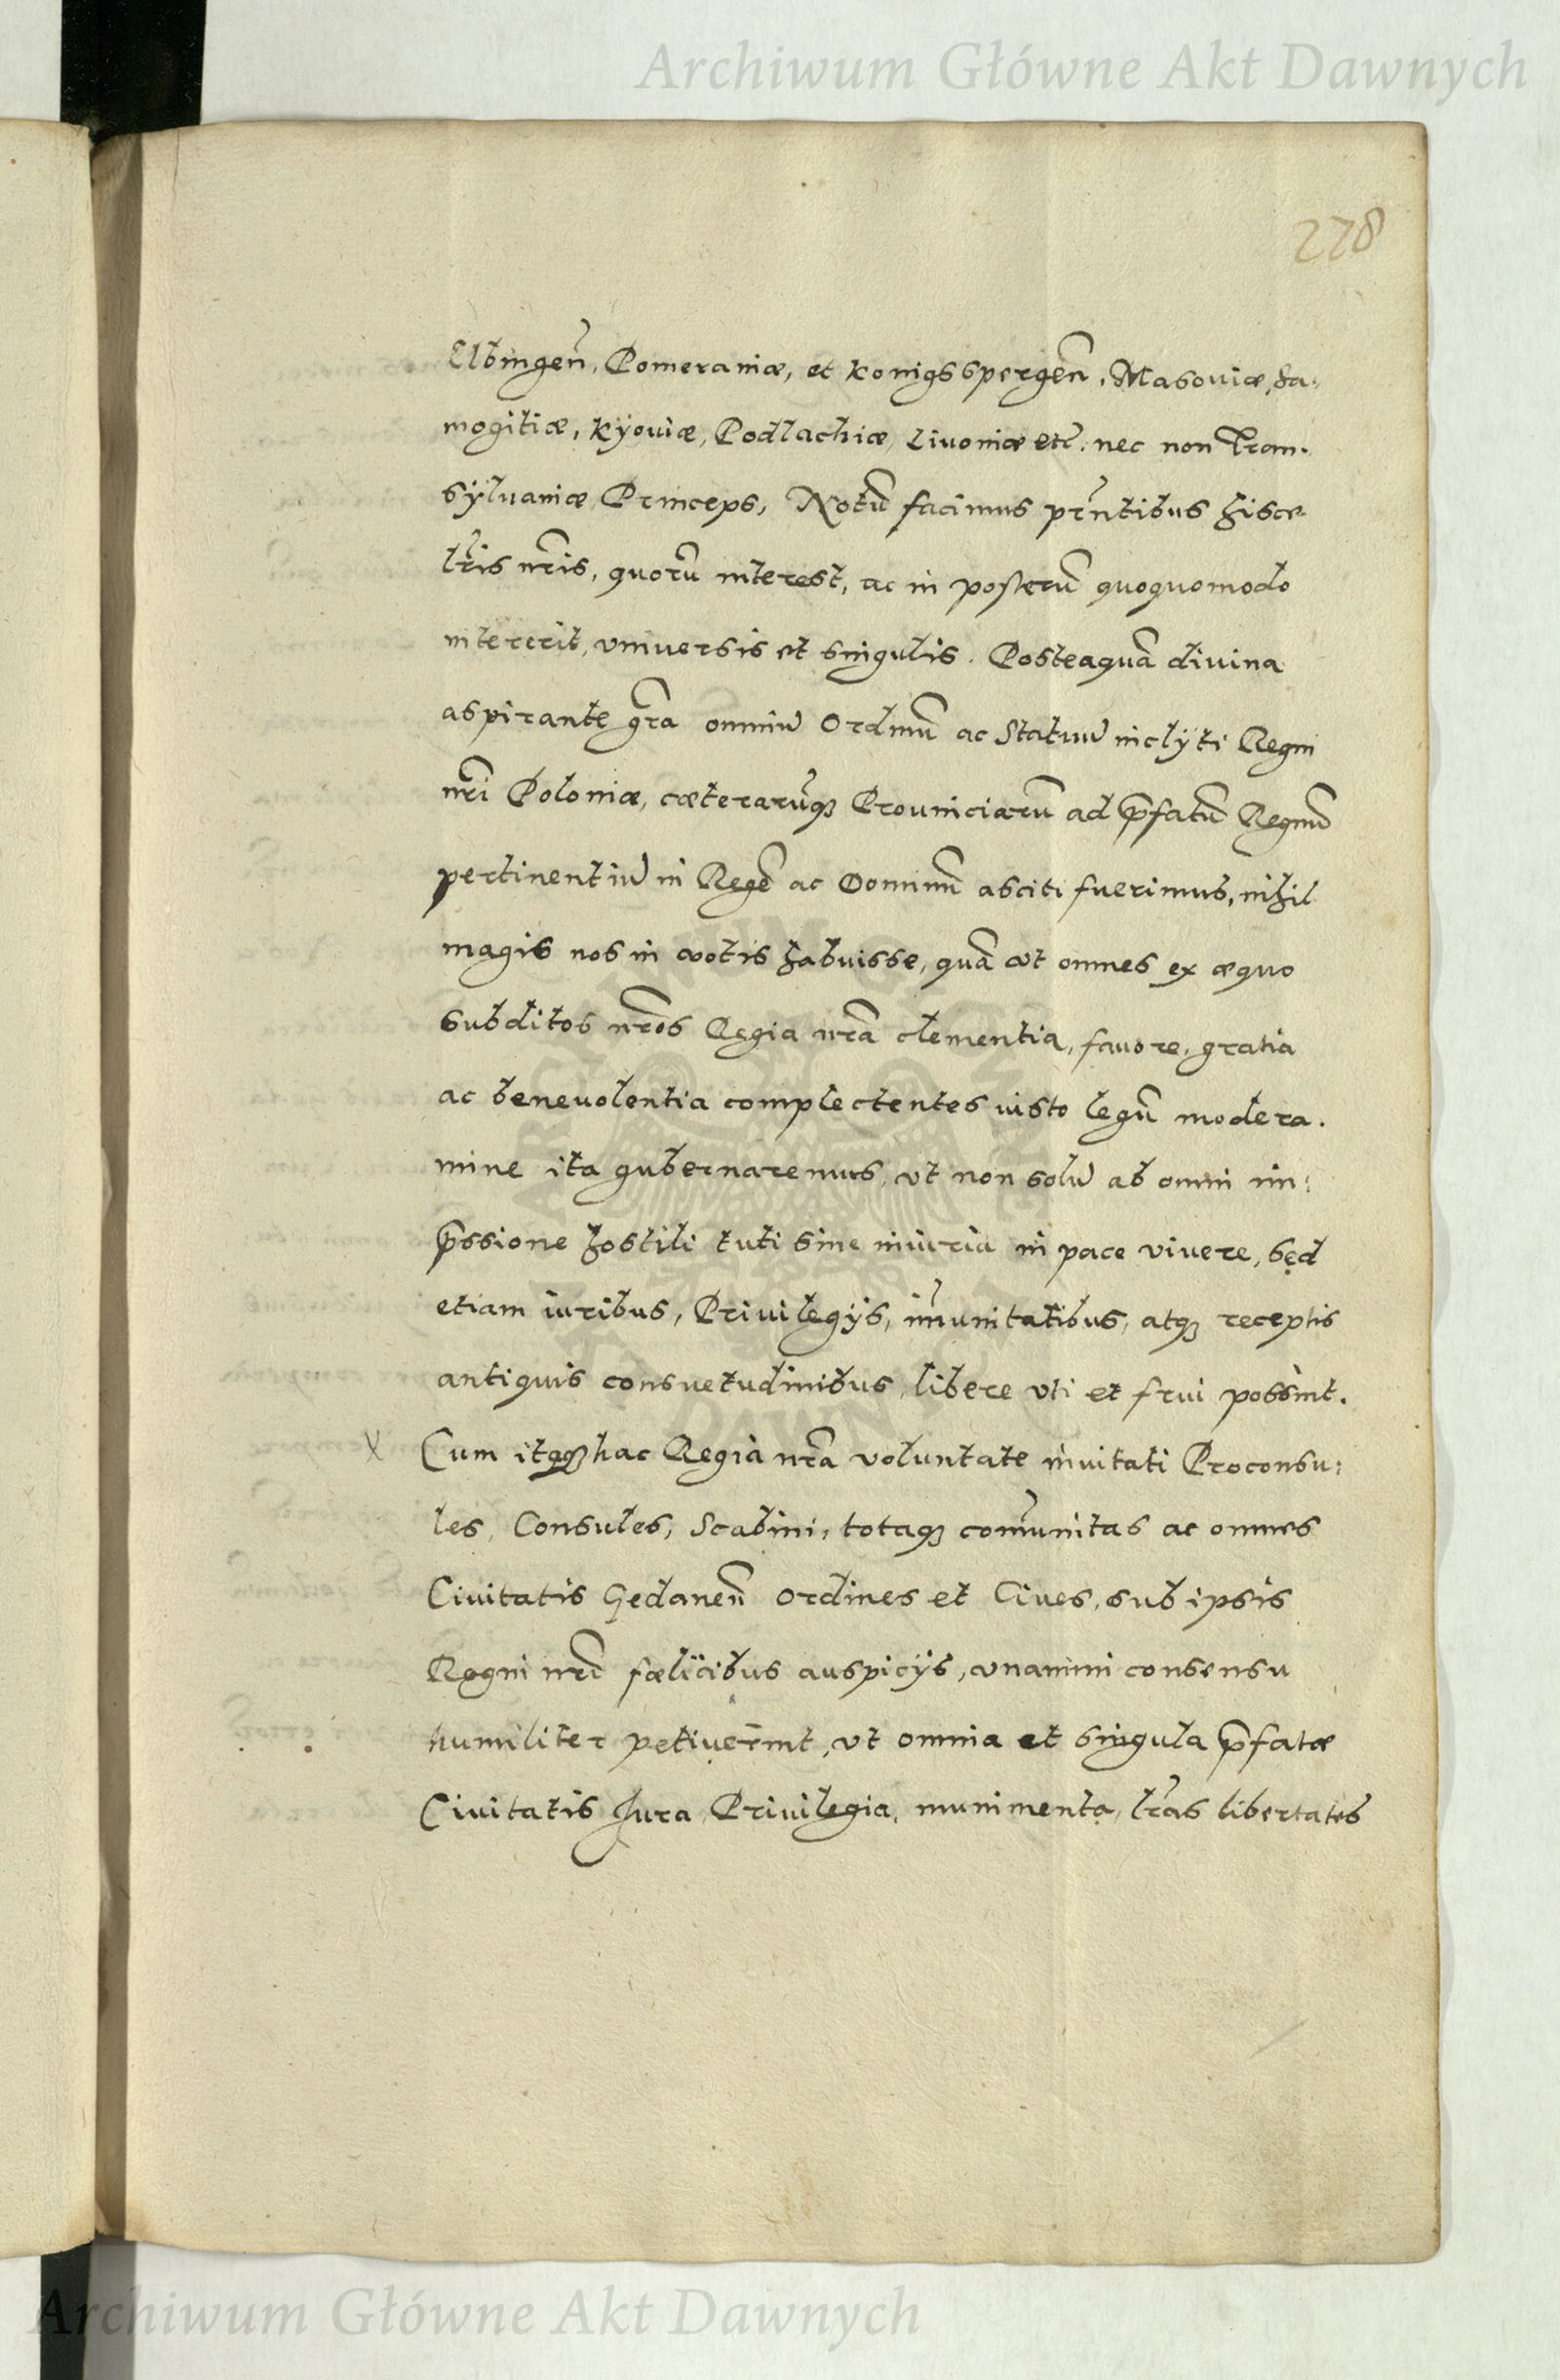 Archiwum Główne Akt Dawnych
228
Elbingeñ, Pomeraniæ, et Konigsspergeñ, Masoviæ, Sa:
mogitiæ, Kÿoviæ, Podlachiæ, Livoniæ etc̃. nec non Tran.
sÿlvaniæ Princeps, Notũ facimus pr̃ntibus hisce
l̃ris nr̃is, quorũ interest, ac in posterũ quoquomodo
intererit, vniversis et singulis. Posteaquã divina
aspirante gr̃a omniũ Ordinũ ac Statuũ inclÿti Regni
nr̃i Poloniæ, cæterarũq; Provinciarũ ad p̃fatũ Regnũ
pertinentiũ in Regẽ ac Dominũ asciti fuerimus, nihil
magis nos in votis habuisse, quã vt omnes ex æquo
subditos nr̃os Regia nr̃a clementia, favore, gratia
ac benevolentia complectentes iusto legũ modera.
mine ita gubernaremus, vt non solũ ab omni im:
p̃ssione hostili tuti sine iniuria in pace vivere, sed
etiam iuribus, Privilegijs, im̃unitatibus, atq; receptis
antiquis consvetudinibus, libere vti et frui possint.
Cum itaq; hac Regia nr̃a voluntate invitati Proconsu:
les, Consules, Scabini, totaq; com̃unitas ac omnes
Civitatis Gedaneñ Ordines et Cives, sub ipsis
Regni nr̃i fœlicibus auspicijs, vnanimi consensu
humiliter petiverint, vt omnia et singula p̃fatæ
Civitatis Jura, Privilegia, munimenta, l̃ras libertates
Archiwum Główne Akt Dawnych